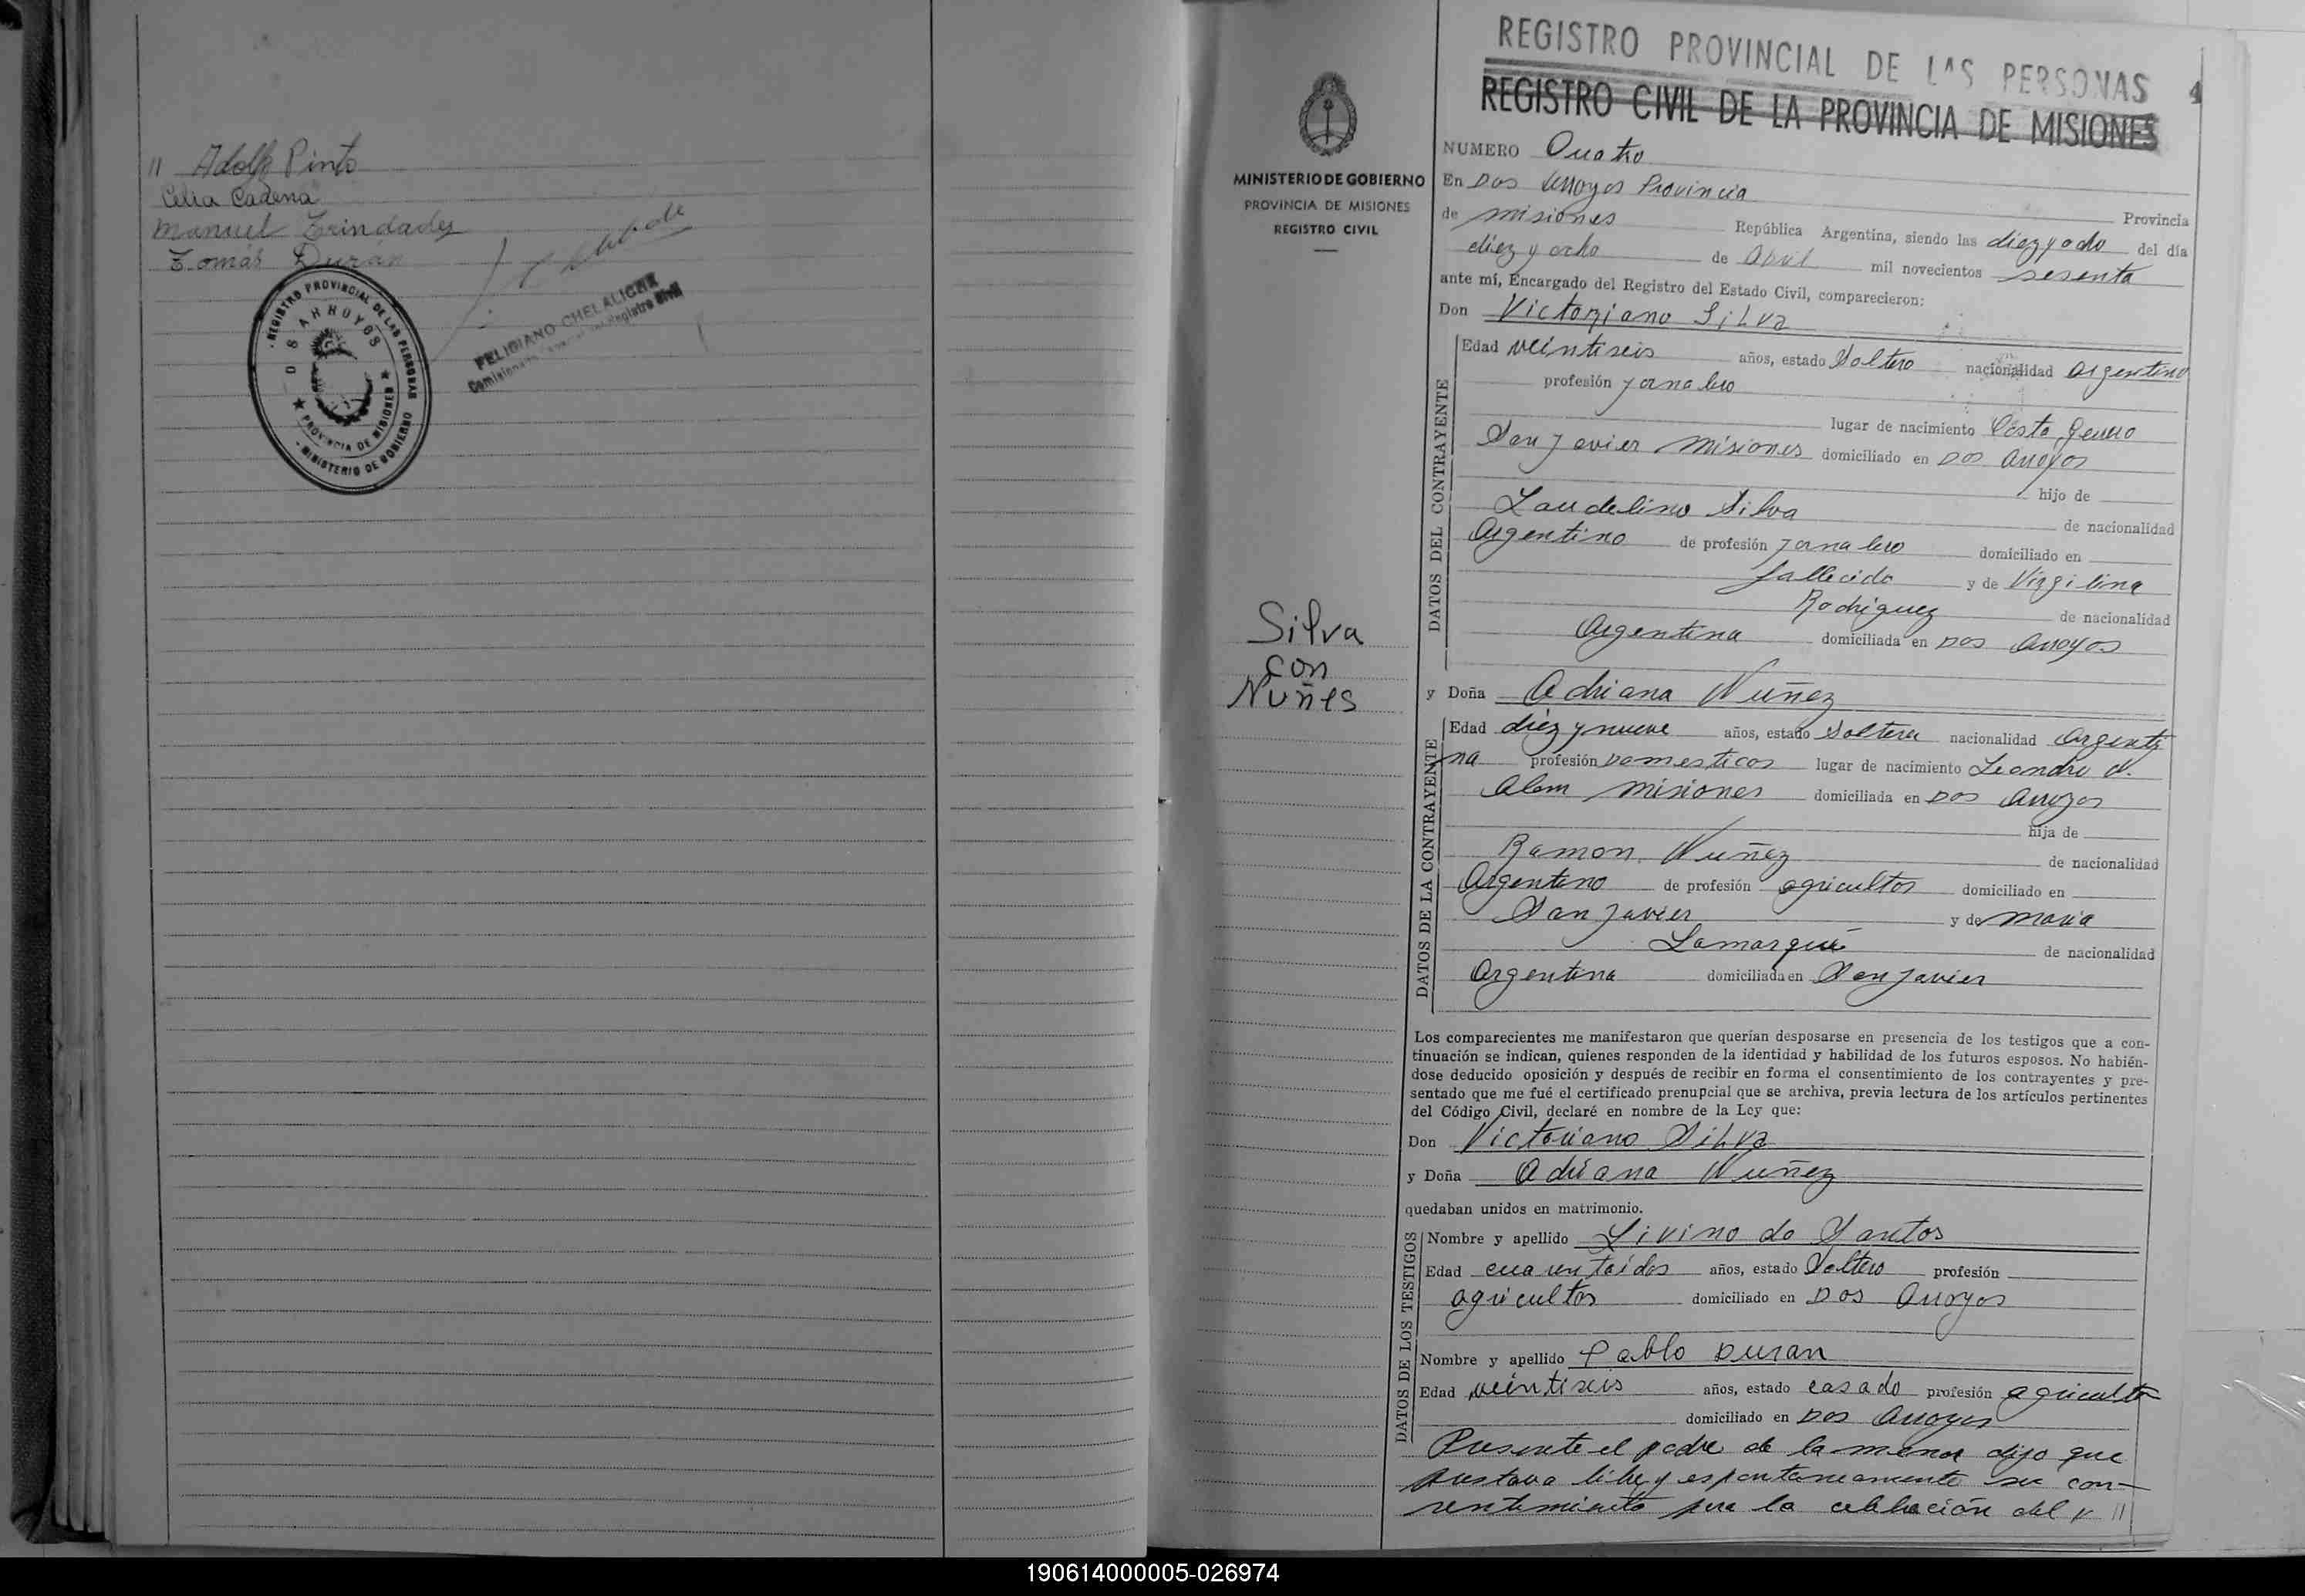 11 Adolfo Pinto
Celia Cadena
Manuel Trindades
Tomás Durán
REGISTRO PROVINCIAL DE LAS PERSONAS
DOS ARROYOS
PROVINCIA DE MISIONES
MINISTERIO DE GOBIERNO
FELICIANO CHELALICHE
Registro Civil
MINISTERIO DE GOBIERNO
PROVINCIA DE MISIONES
REGISTRO CIVIL
Silva
con
Nuñes
REGISTRO PROVINCIAL DE LAS PERSONAS 4
REGISTRO CIVIL DE LA PROVINCIA DE MISIONES
NUMERO Cuatro
En Dos Arroyos Provincia Provincia
de Misiones República Argentina, siendo las diez y ocho del día
diez y ocho de Abril mil novecientos sesenta
ante mí, Encargado del Registro del Estado Civil, comparecieron:
Don Victoriano Silva
DATOS DEL CONTRAYENTE
Edad veintiseis años, estado Soltero nacionalidad Argentino
profesión Jornalero
lugar de nacimiento Costa
San Javier Misiones domiciliado en Dos Arroyos
hijo de
Laudelino Silva de nacionalidad
Argentino de profesión Jornalero domiciliado en
fallecido y de Virgilina
Rodriguez de nacionalidad
Argentina domiciliada en Dos Arroyos
y Doña Adriana Nuñez
DATOS DE LA CONTRAYENTE
Edad diez y nueve años, estado Soltera nacionalidad Argenti
na profesión Domesticos lugar de nacimiento Leandro N.
Alem Misiones domiciliada en Dos Arroyos
hija de
Ramon Nuñez de nacionalidad
Argentino de profesión agricultor domiciliado en
San Javier y de Maria
Lamarque de nacionalidad
Argentina domiciliada en San Javier
Los comparecientes me manifestaron que querían desposarse en presencia de los testigos que a con-
tinuación se indican, quienes responden de la identidad y habilidad de los futuros esposos. No habién-
dose deducido oposición y después de recibir en forma el consentimiento de los contrayentes y pre-
sentado que me fué el certificado prenupcial que se archiva, previa lectura de los artículos pertinentes
del Código Civil, declaré en nombre de la Ley que:
Don Victoriano Silva
y Doña Adriana Nuñez
quedaban unidos en matrimonio.
DATOS DE LOS TESTIGOS
Nombre y apellido Livino do Santos
Edad cuarentaidos años, estado Soltero profesión
agricultor domiciliado en Dos Arroyos
Nombre y apellido Pablo Duran
Edad veintiseis años, estado casado profesión agricultor
domiciliado en Dos Arroyos
Presente el padre de la menor dijo que
prestava libre y espontaneamente su con-
sentimiento para la celebración del 11
190614000005-026974